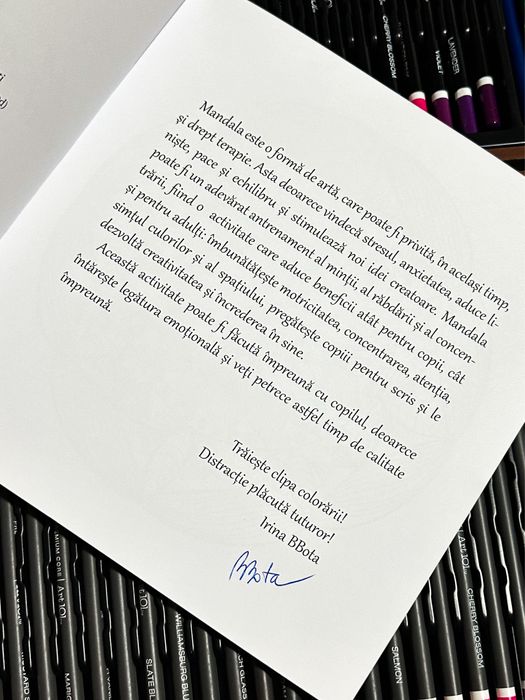 Mandala este o formă de artă, care poate fi privită, în același timp,
și drept terapie. Asta deoarece vindecă stresul, anxietatea, aduce li-
niște, pace și echilibru și stimulează noi idei creatoare. Mandala
poate fi un adevărat antrenament al minții, al răbdării și al concen-
trării, fiind o activitate care aduce beneficii atât pentru copii, cât
și pentru adulți: îmbunătățește motricitatea, concentrarea, atenția,
simțul culorilor și al spațiului, pregătește copiii pentru scris și le
dezvoltă creativitatea și încrederea în sine.
Această activitate poate fi făcută împreună cu copilul, deoarece
întărește legătura emoțională și veți petrece astfel timp de calitate
împreună.
Trăiește clipa colorării!
Distracție plăcută tuturor!
Irina BBota
BBota
CHERRY BLOSSOM
VIOLET
LAVENDER
Art 101
WILLIAMSBURG BLU
SLATE BL
SALMON
CHERRY BLOSSOM
Art 101